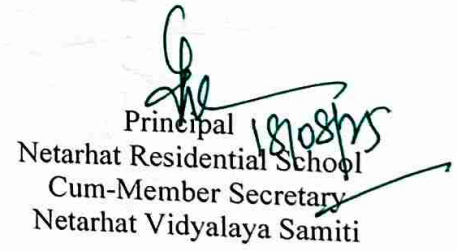 Principal
18/08/25
Netarhat Residential School
Cum-Member Secretary
Netarhat Vidyalaya Samiti